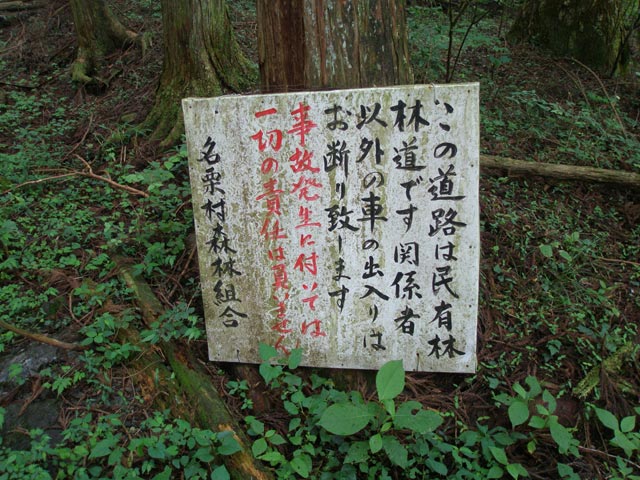 この道路は民有林
林道です関係者
以外の車の出入りは
お断り致します
事故発生に付いては
一切の責任は負いません
名栗村森林組合